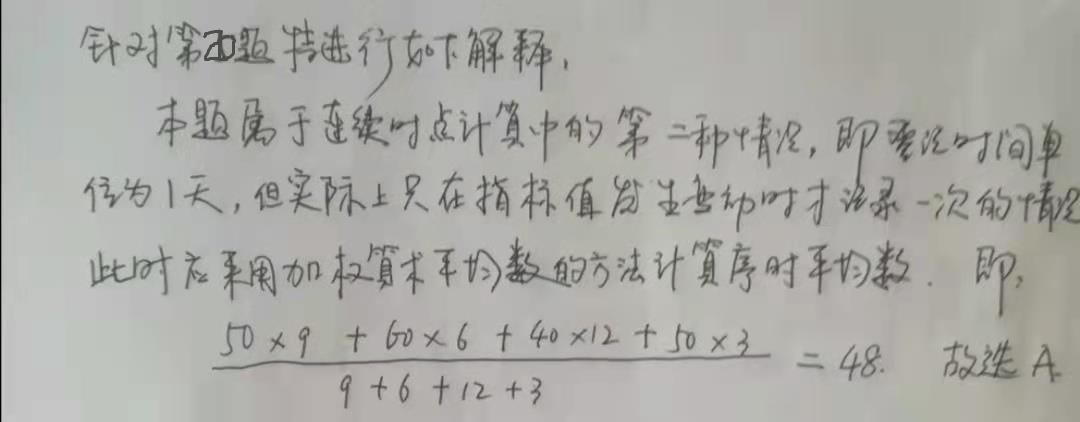 针对第20题特进行如下解释,
本题属于连续时点计算中的第二种情况,即登记时间单
位为1天,但实际上只在指标值发生变动时才记录一次的情况
此时应采用加权算术平均数的方法计算序时平均数. 即:
50×9 + 60×6 + 40×12 + 50×3
9+6+12+3
= 48. 故选A.